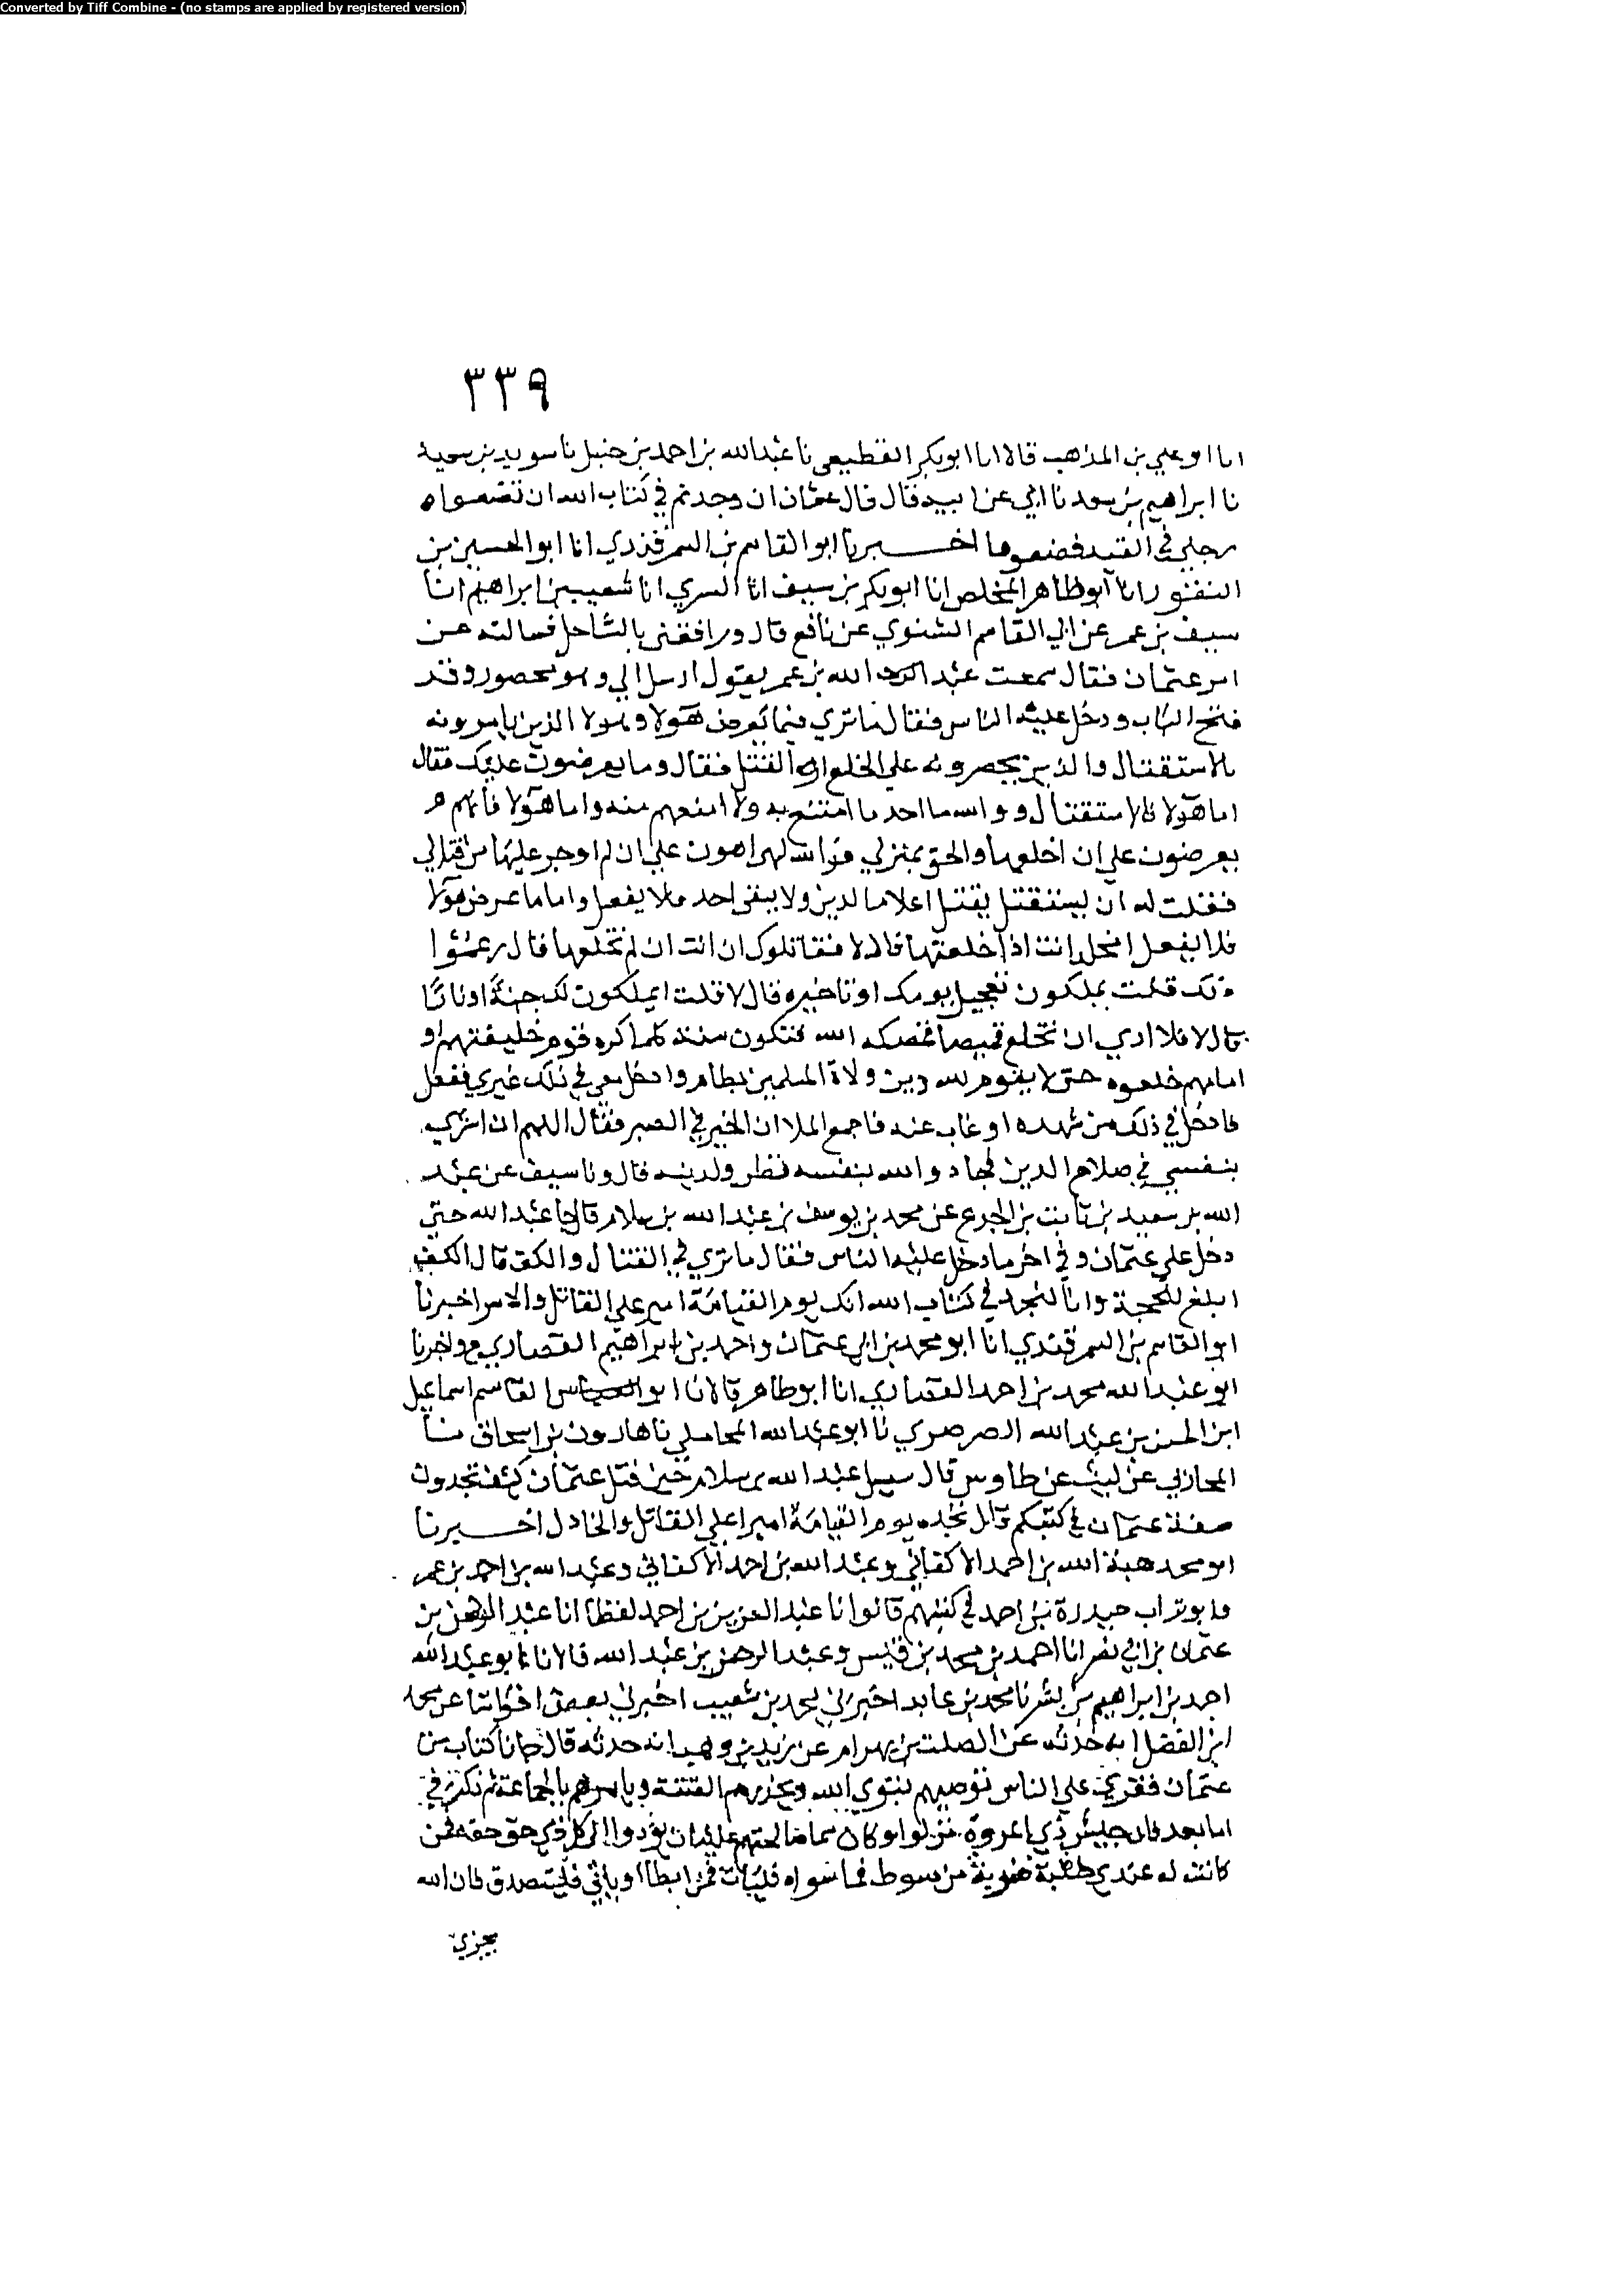 Converted by Tiff Combine - (no stamps are applied by registered version)
٣٣٩
انا ابو علي بن المذهب قالا انا ابو بكر القطيعي نا عبد الله بن احمد بن حنبل نا سويد بن سعيد
نا ابراهيم بن سعد نا ابي عن ابيه قال قال عثمان ان وجدتم في كتاب الله ان تضعوا
رجلي في القيد فضعوها اخبرنا ابو القاسم بن السمرقندي انا ابو الحسين بن
النقور انا ابو طاهر المخلص انا ابو بكر بن سيف انا السري انا شعيب بن ابراهيم انا
سيف بن عمر عن ابي القاسم الشنوي عن نافع قال ورافقني بالشاحل فسالته عن
امر عثمان فقال سمعت عبد الله بن عمر يقول ارسل الي وهو محصور وقد
فتح الباب ودخل عليه الناس فقال ما تري فيما يعرض هولا وهولا الذين يامرونه
بالاستقتال والذين يحصرونه علي الخلع او القتل فقال وما يعرضون عليك فقال
اما هولا فالاستقتال و والله ما احد ما امتنع به ولا امنعهم منه واما هولا فانهم
يعرضون علي ان اخلعها والحق بمنزلي فوالله لهي اهون علي ان لم اوجر عليها من قبالي
فقلت له ان يستقتل يقتل اعلام الدين ولا يبقي احد فلا يفعل واما ما عرض هولا
فلا يفعل امخلد انت اذا خلعتها قال لا فقاتلوك ان انت ان لم تخلعها قال زعموا
ذلك قلت يملكون تعجيل يومك او تاخيره قال لا قلت ايملكون لك جنة او نارا
قال لا فلا اري ان تخلع قميصا قمصكه الله فتكون سنة كلما كره قوم خليفتهم او
امامهم خلعوه حتي لا يقوم لله دين ولاة المسلمين نظام وادخل معي في ذلك غيري ففعل
فادخل في ذلك من شهده او غاب عنه فاجمع الملا ان الخير في الصبر فقال اللهم ان اشري
بنفسي في صلاح الدين فجاد والله بنفسه نظر ولدينه قال ونا سيف عن عبد
الله بن سعيد بن ثابت بن الجدع عن محمد بن يوسف بن عبد الله بن سلام قال جا عبد الله حتي
دخل علي عثمان وفي اخر ما دخل عليه الناس فقال ما تري في القتال والكف قال الكف
ابلغ للحجة وانا لنجد في كتاب الله انك يوم القيامة امير علي القاتل والامر اخبرنا
ابو القاسم بن السمرقندي انا ابو محمد بن ابي عثمان واحمد بن ابراهيم القصاري ح واخبرنا
ابو عبد الله محمد بن احمد القصاري انا ابو طاهر قالا نا ابو القاسم اسماعيل
ابن الحسن بن عبد الله الصرصري نا ابو عبد الله المحاملي نا هارون بن اسحاق نا
المحاربي عن ليث عن طاوس قال سيل عبد الله بن سلام حين قتل عثمان كيف تجدون
صفة عثمان في كتبكم قال نجده يوم القيامة اميرا علي القاتل والخاذل اخبرنا
ابو محمد هبة الله بن احمد الاكفاني وعبد الله بن احمد الاكفاني وعبد الله بن احمد بن عمر
وابو تراب حيدرة بن احمد في كتبهم قالوا نا عبد العزيز بن احمد لفظا انا عبد الرحمن بن
عثمان بن ابي نصر انا احمد بن محمد بن قيس وعبد الرحمن بن عبد الله قالا نا ابو عبد الله
احمد بن ابراهيم بن بشر نا محمد بن عايد اخبرني محمد بن شعيب اخبرني بعض اخواننا عن محمد
ابن الفضل انه حدثه عن الصلت بن بهرام عن زيد بن وهب انه حدثه قال جانا كتاب من
عثمان فقري علي الناس نوصيهم بتقوي الله ويحذرهم الفتنة ويامرهم بالجماعة ثم نكر في
اما بعد فان جيش ذي المروة نزلوا وكان مما صالحتهم عليه ان يؤدوا الي كل ذي حق حقه فمن
كانت له عندي طلبة ضربة من سوط فما سواه فليات فمن ابطا او ياتي فليتصدق فان الله
يجزي